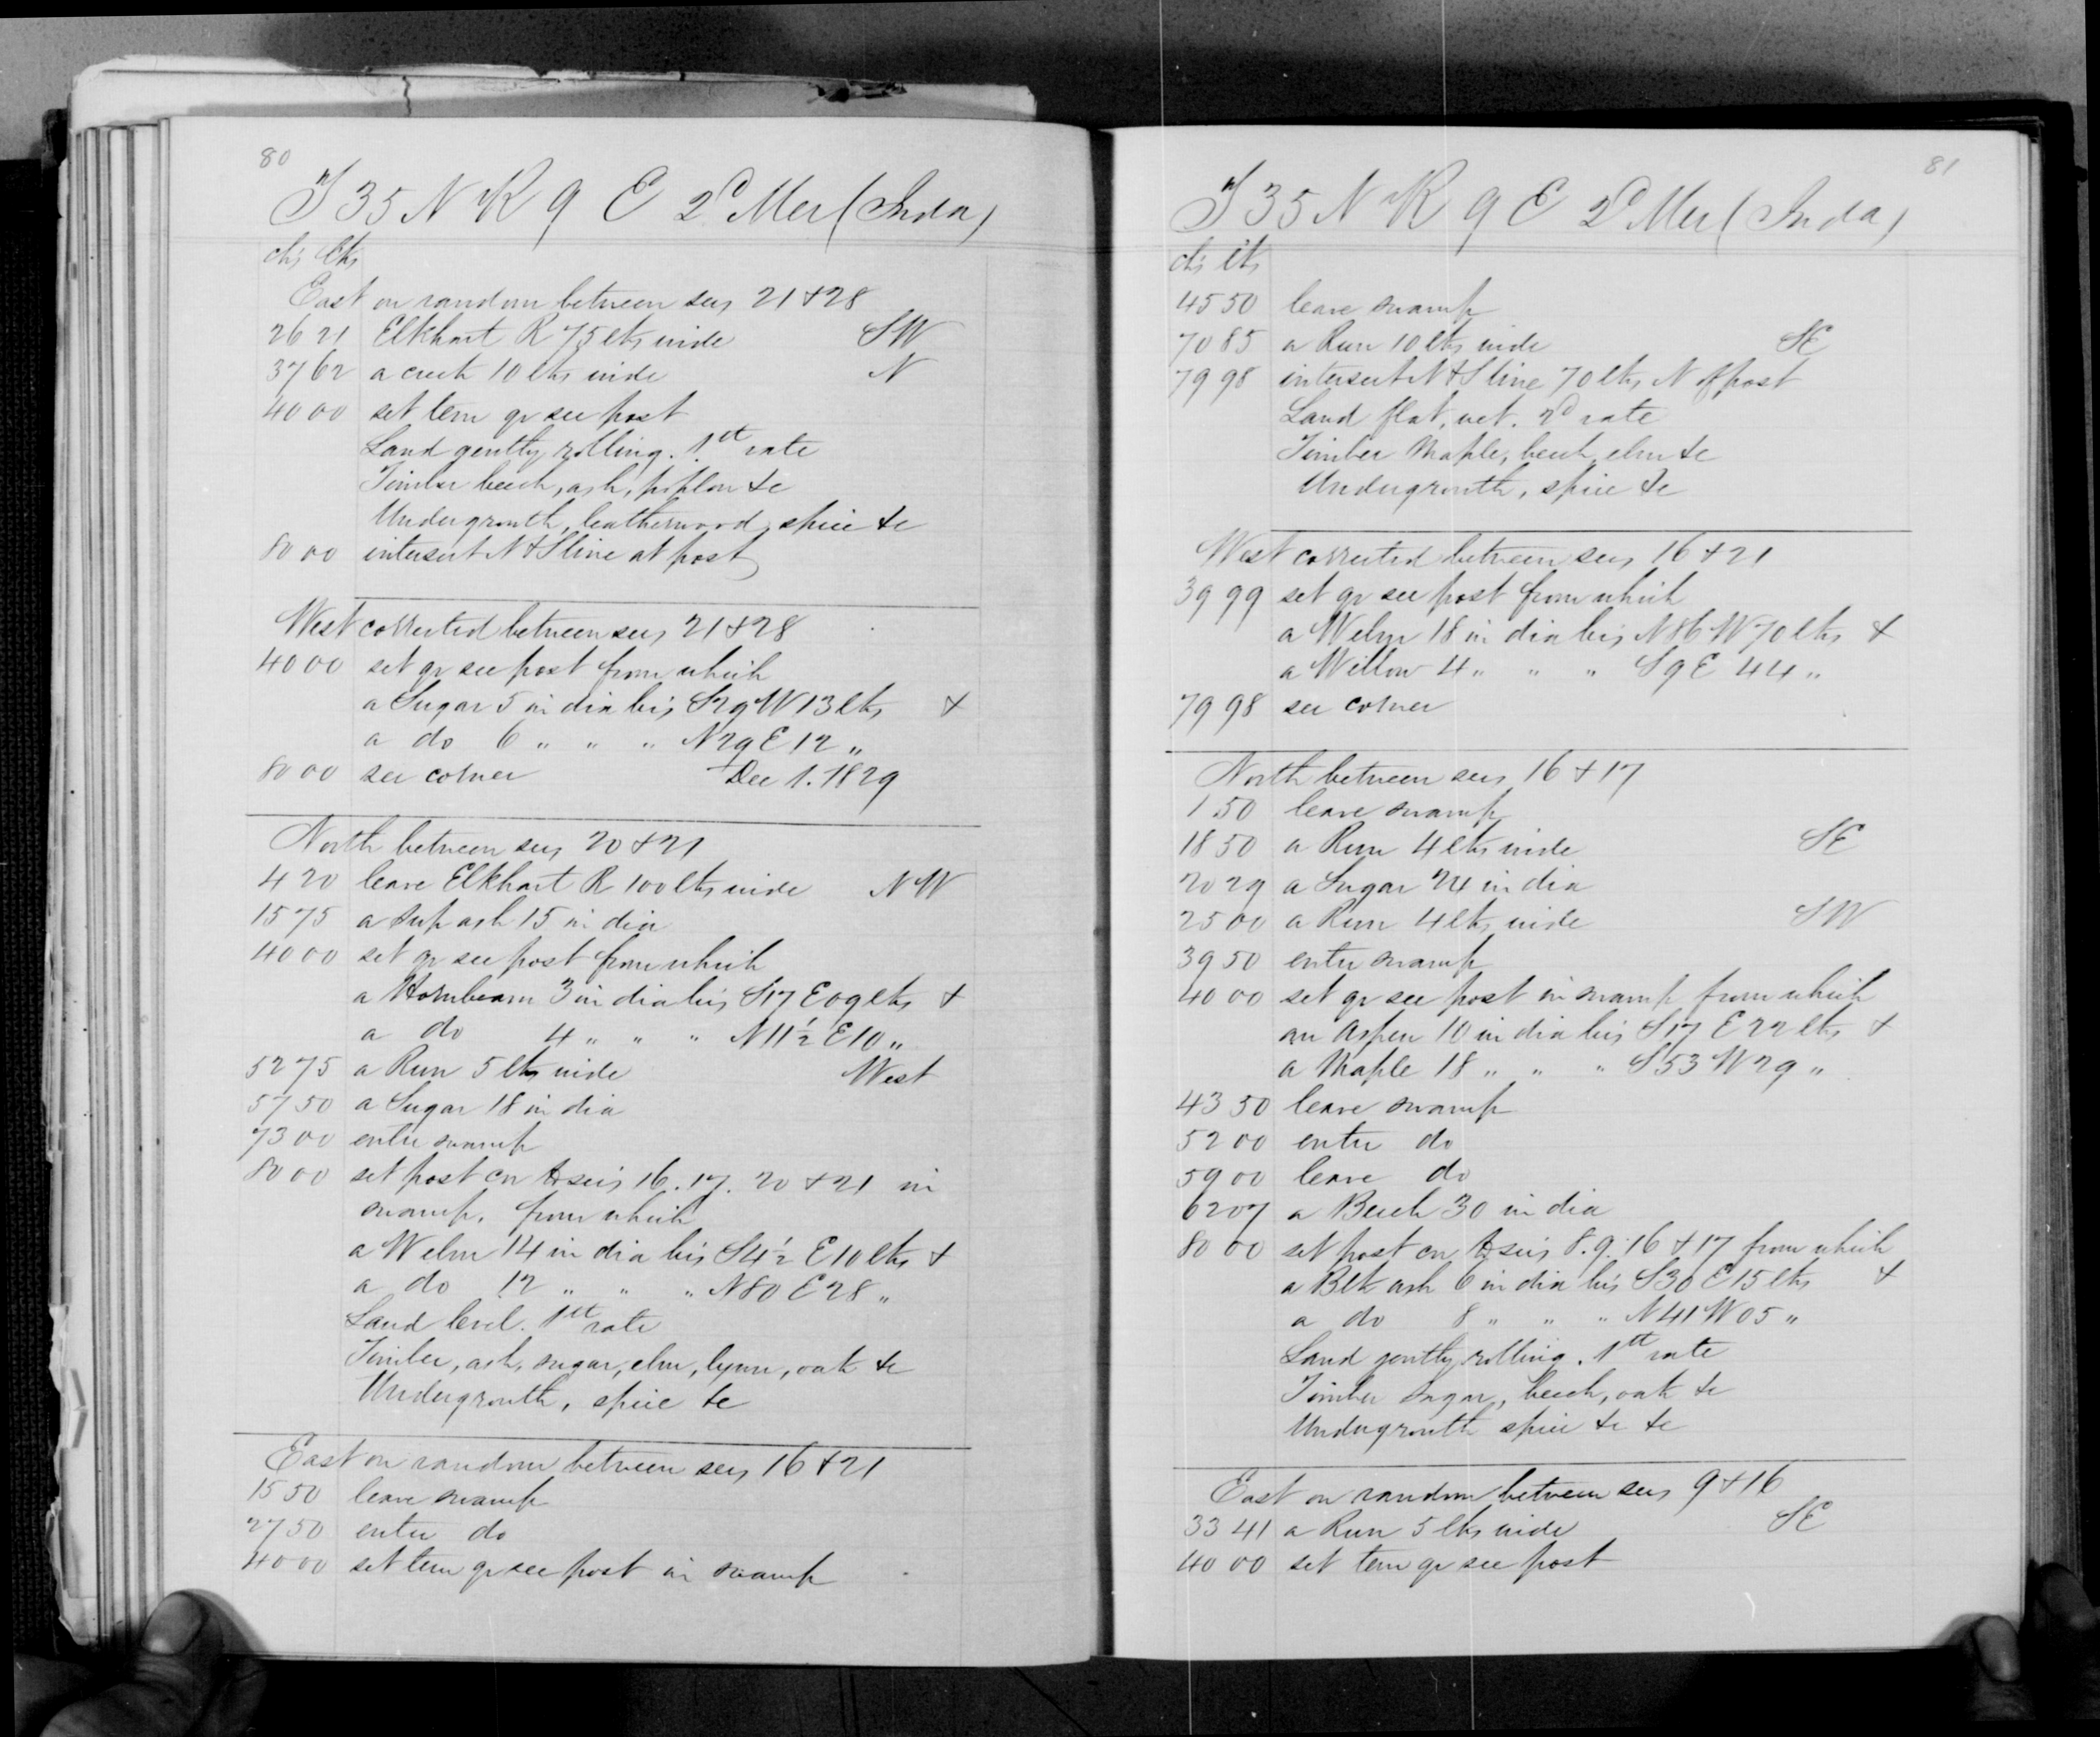 80
T 35 N R 9 E 2d Mer (Inda)
chs lks
East on random between secs 21 & 28
26 21 Elkhart R 75 lks wide SW
37 62 a creek 10 lks wide N
40 00 set tem qr sec post
Land gently rolling. 1st rate
Timber beech, ash, poplar &c
Undergrowth, leatherwood, spice &c
80 00 intersect N & S line at post
West corrected between secs 21 & 28
40 00 set qr sec post from which
a Sugar 5 in dia brs S29 W 13 lks &
a do 6 " " " N29 E 12 "
80 00 sec corner Dec 1. 1829
North between secs 20 & 21
4 20 leave Elkhart R 100 lks wide NW
15 75 a Sup ash 15 in dia
40 00 set qr sec post from which
a Hornbeam 3 in dia brs S17 E 09 lks &
a do 4 " " " N11½ E 10 "
52 75 a Run 5 lks wide West
57 50 a Sugar 18 in dia
73 00 enter swamp
80 00 set post cor to secs 16. 17. 20 & 21 in
swamp, from which
a W elm 14 in dia brs S4½ E 10 lks &
a do 12 " " " N80 E 28 "
Land level. 1st rate
Timber, ash, sugar, elm, lynn, oak &c
Undergrowth, spice &c
East on random between secs 16 & 21
15 50 leave swamp
27 50 enter do
40 00 set tem qr sec post in swamp
81
T 35 N R 9 E 2d Mer (Inda)
chs lks
45 50 leave swamp
70 85 a Run 10 lks wide SE
79 98 intersect N & S line 70 lks N of post
Land flat, wet. 2d rate
Timber Maple, beech, elm &c
Undergrowth, spice &c
West corrected between secs 16 & 21
39 99 set qr sec post from which
a W elm 18 in dia brs N86 W 70 lks &
a Willow 4 " " " S9 E 44 "
79 98 sec corner
North between secs 16 & 17
1 50 leave swamp
18 50 a Run 4 lks wide SE
20 29 a Sugar 24 in dia
25 00 a Run 4 lks wide SW
39 50 enter swamp
40 00 set qr sec post in swamp from which
an Aspen 10 in dia brs S17 E 22 lks &
a Maple 18 " " " S53 W 29 "
43 50 leave swamp
52 00 enter do
59 00 leave do
62 07 a Beech 30 in dia
80 00 set post cor to secs 8. 9. 16 & 17 from which
a Blk ash 6 in dia brs S30 E 15 lks &
a do 8 " " " N41 W 05 "
Land gently rolling. 1st rate
Timber Sugar, beech, oak &c
Undergrowth spice &c &c
East on random between secs 9 & 16
33 41 a Run 5 lks wide SE
40 00 set tem qr sec post